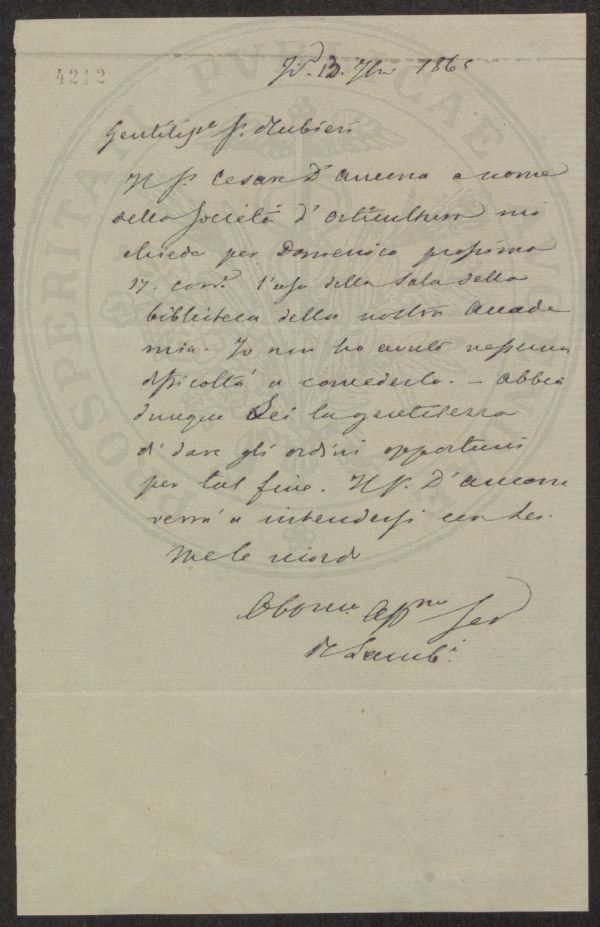 4212
13. 7bre 1865
Gentiliss.e S.r Rubieri
Il S.r Cesare D'Ancona a nome
della Società d'orticultura mi
chiede per Domenica prossima
17. corr.e l'uso della Sala della
biblioteca della nostra Accade
mia. Io non ho avuto nessuna
difficoltà a concederla. – Abbia
dunque Lei la gentilezza
di dare gli ordini opportuni
per tal fine. Il S.r D'Ancona
verrà a intendersi con Lei.
Me le ricordo
Aff.mo
PROSPERITATI PVBLICAE AVG